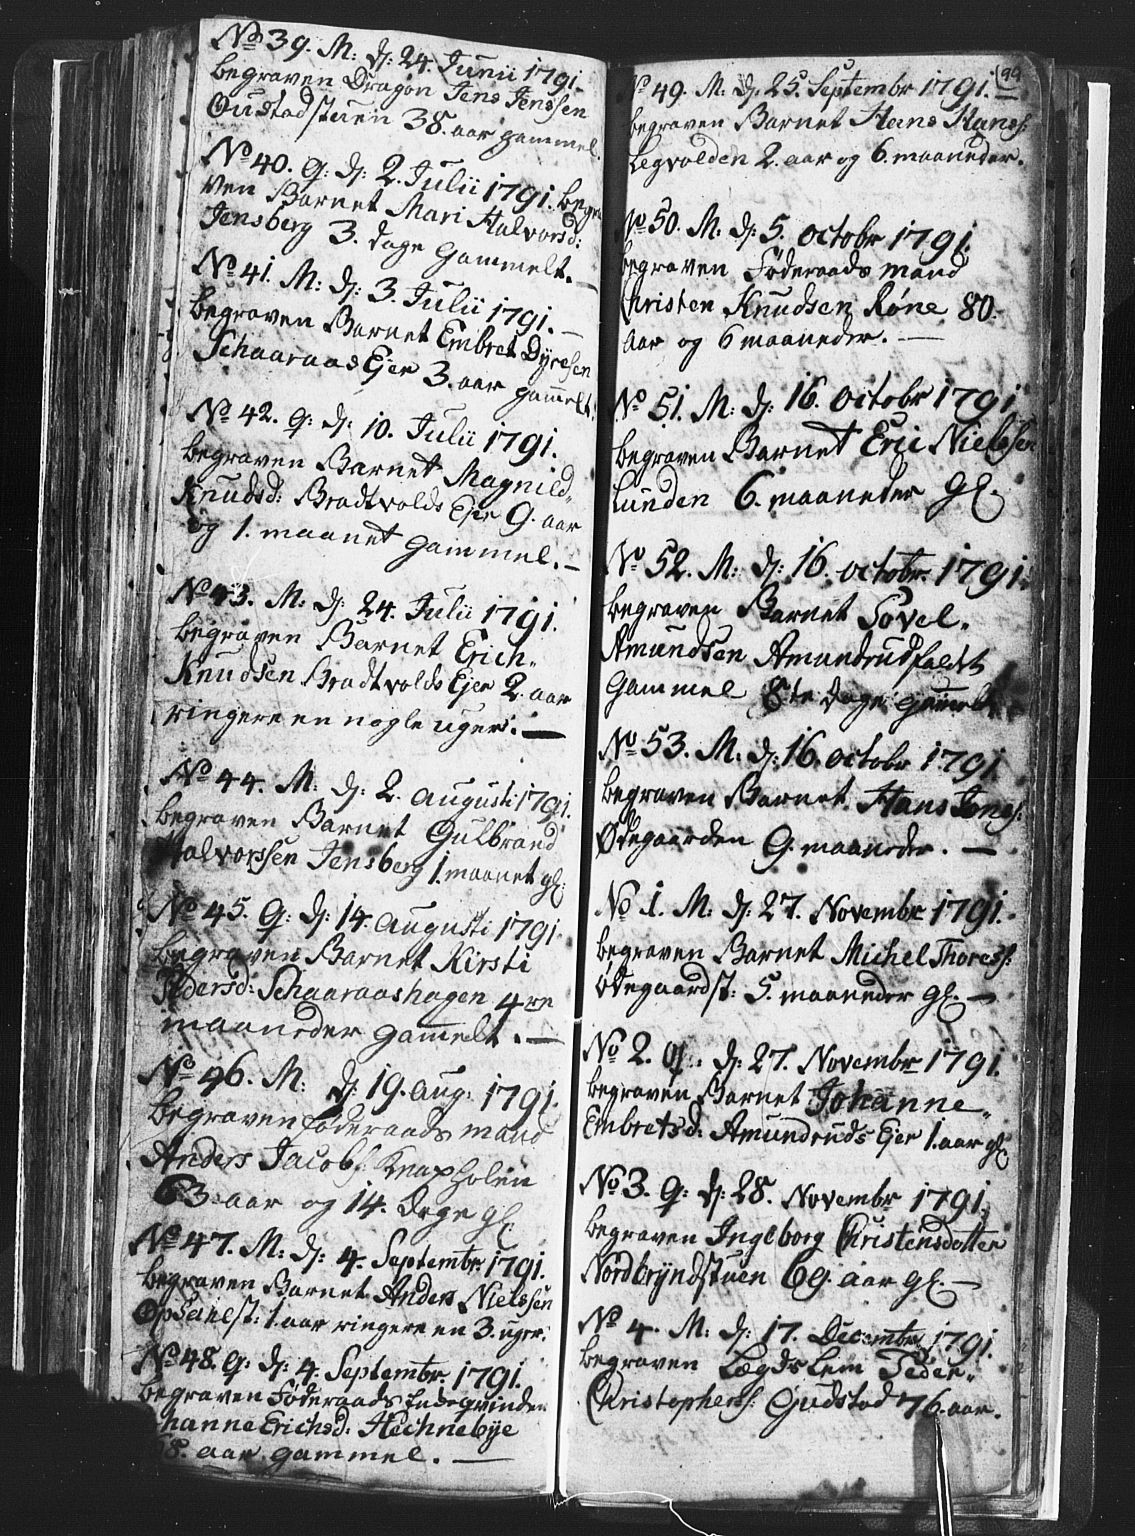 No 39. M: dj: 24. Junii 1791.
begraven Dragon Jens Jenssen
Oustadstuen 38. aar gammel.
No 40. Q: dj: 2. Julii 1791. begra
ven Barnet Mari Halvorsd:
Jensberg 3. dage gammelt.
No 41. M: dj: 3. Julii 1791.
begraven Barnet Embret Dyresen
Schaaraas Ejer 3. aar gam̅elt.
No 42. Q: dj: 10. Julii 1791.
begraven Barnet Magnild
Knudsd: Bradtvolds Ejer 9. aar
og 1. maanet gammel.
No 43. M: dj: 24. Julii 1791.
begraven Barnet Erich
Knudsen Bradtvolds Ejer 2. aar
ringere en nogle uger.
No 44. M: dj: 2. Augusti 1791.
begraven Barnet Gulbrand
Halvorssen Jensberg 1. maanet gl:
No 45. Q: dj: 14. Augusti 1791.
begraven Barnet Kirsti
Pedersd: Schaaraashagen 4re
maaneder gam̅elt.
No 46. M: dj: 19. Aug: 1791.
begraven Føderaads mand
Anders Jacobs: Knapholen
63 aar og 14. Dage gl:
No 47. M: dj: 4. Septembr. 1791.
begraven Barnet Anders Nielssen
Opsahlst: 1. aar ringere en 3. uger.
No 48. Q: dj: 4. Septembr. 1791.
begraven Føderaads Enkeqvinden
hanne Erichsd: Hechnebye
8. aar gammel.
99
No 49. M: dj: 25. Septembr 1791.
begraven Barnet Hans Hanss:
Legvolden 2. aar og 6. maaneder.
No 50. M: dj: 5. octobr 1791.
begraven Føderaads mand
Christen Knudsen Røne 80.
aar og 6 maaneder.
No 51. M: dj: 16. octobr 1791
begraven Barnet Eric Nielssen
Lunden 6. maaneder gl.
No 52. M: dj: 16. octobr. 1791.
begraven Barnet Povel
Amundsen Amundrudfaldet
Gammel 8te dage gam̅elt
No 53. M: dj: 16. octobr 1791
begraven Barnet Hans Jenss:
Ødegaarden 9. maaneder.
No 1. M: dj: 27. Novembr 1791.
begraven Barnet Michel Thoress:
Ødegaardst: 5. maaneder gl.
No 2. Q: dj: 27. Novembr 1791.
begraven Barnet Johanne
Embretsd: Amundruds Ejer 1. aar gl:
No 3. Q: dj: 28. Novembr 1791.
begraven Ingeborg Christensdotter
Nordbryndstuen 69. aar gl.
No 4. M: dj: 17. Decembr 1791.
begraven Lægds Lem Peder
Christophers: Gudstad 76. aar.